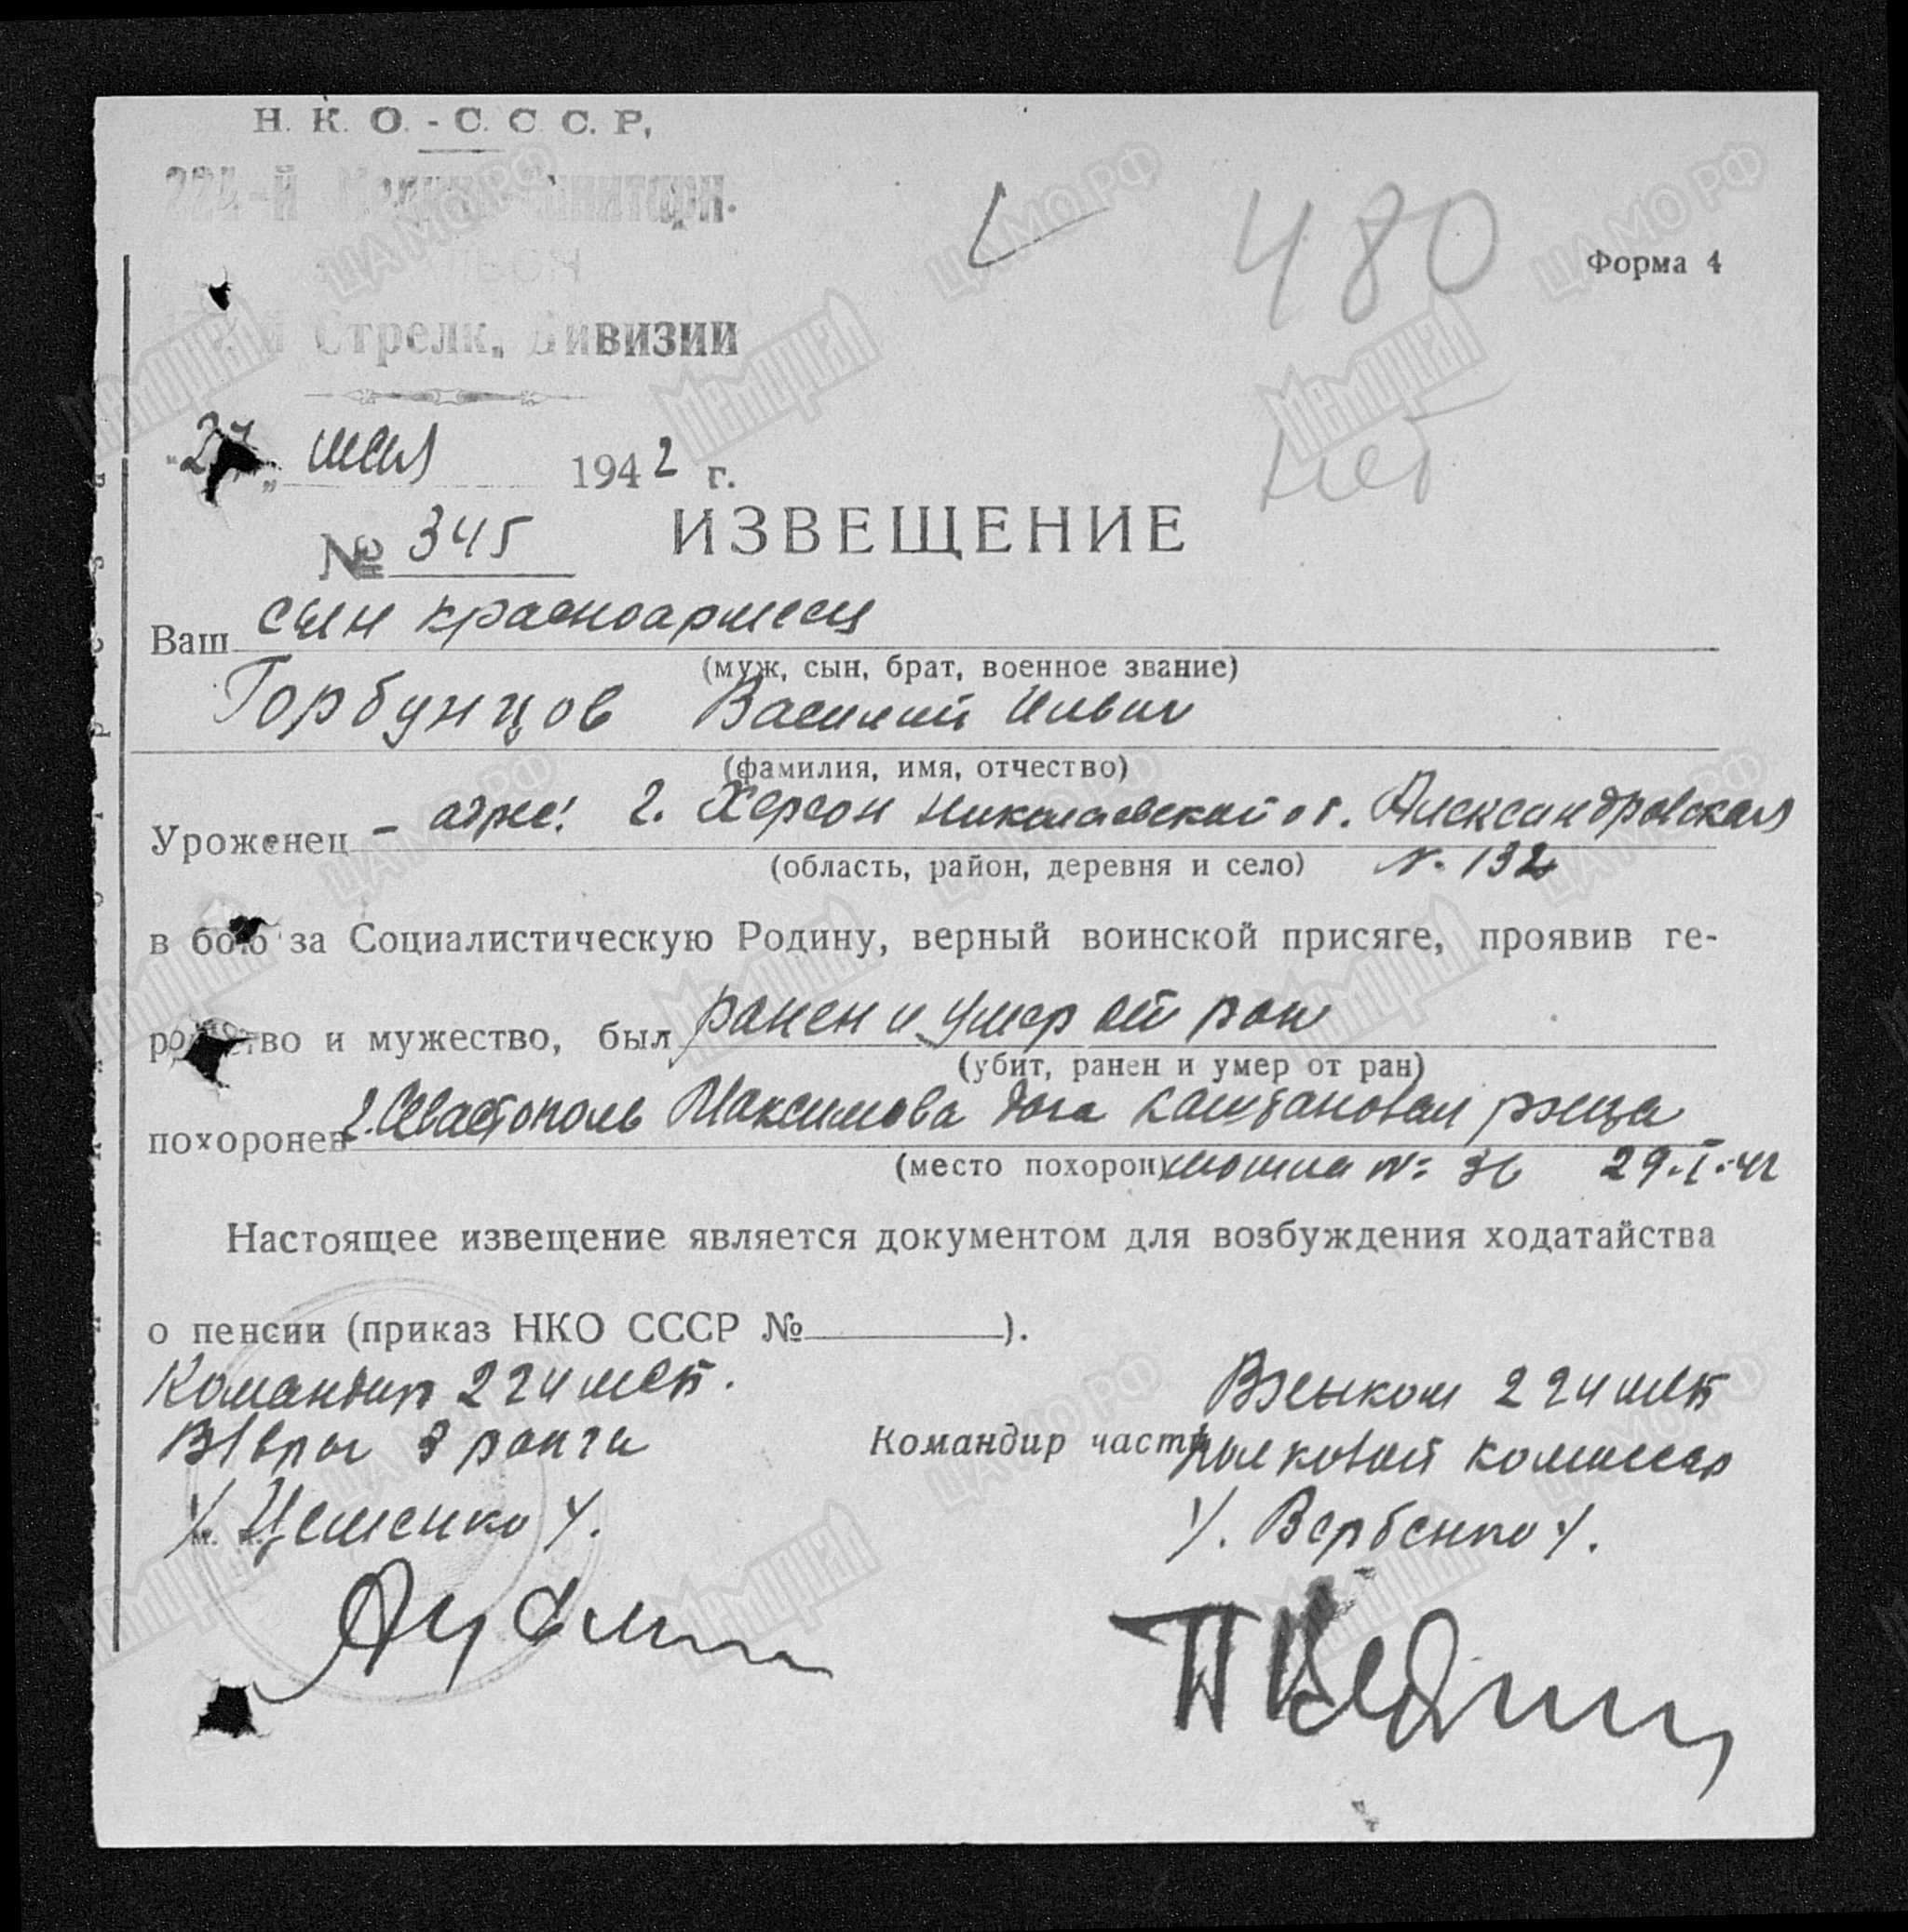 Н. К. О. - С. С. С. Р.
224-й Медико-Санитарн.
Стрелк. Дивизии
Форма 4
480
нет
мая 1942 г.
№ 345 ИЗВЕЩЕНИЕ
Ваш сын красноармеец
(муж, сын, брат, военное звание)
Горбунцов Василий
(фамилия, имя, отчество)
Уроженец - адрес: г. Херсон Николаевской об. Александровская
(область, район, деревня и село) №. 132
в бою за Социалистическую Родину, верный воинской присяге, проявив ге-
ройство и мужество, был ранен и умер от ран
(убит, ранен и умер от ран)
похоронен г. Севастополь Максимова дача каштановая роща
(место похорон) могила №: 36 29.I.42
Настоящее извещение является документом для возбуждения ходатайства
о пенсии (приказ НКО СССР № ).
Командир 224 мсб.
В/врач 3 ранга
Командир части
Военком 224 мсб
полковой комиссар
/. Цешенко /.
/. Вербенко /.
ЦА МО РФ
Мемориал